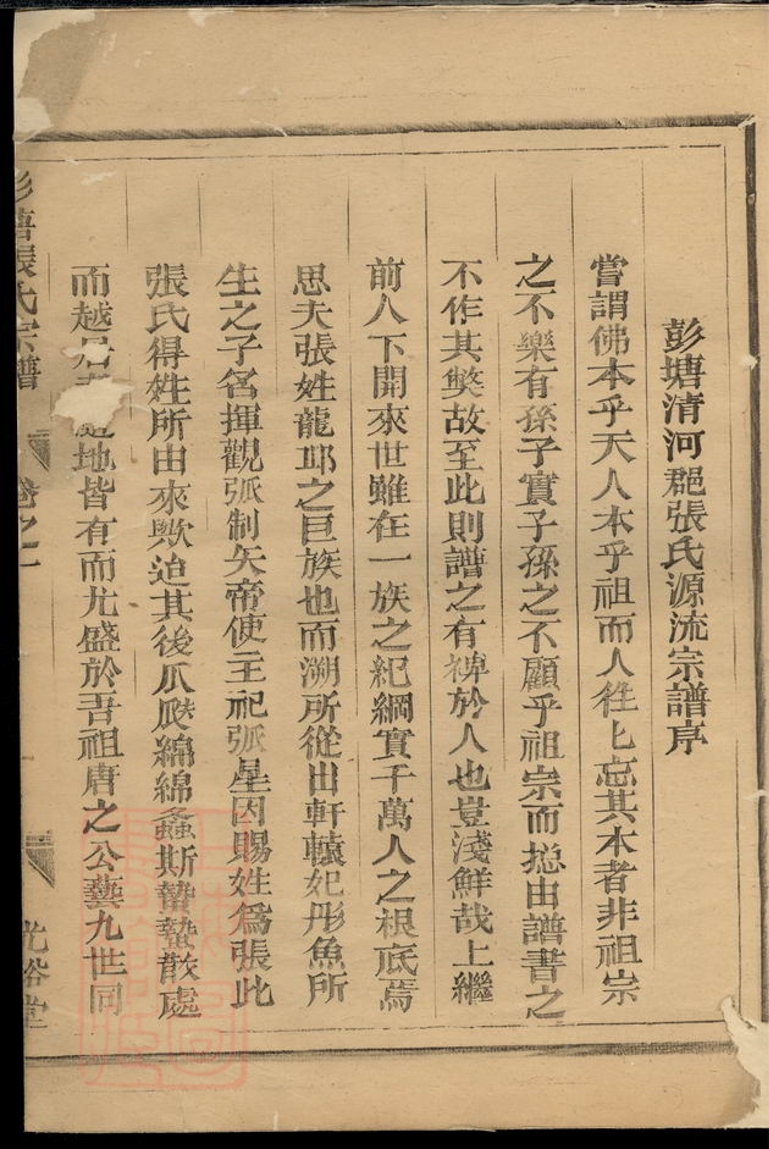 彭塘清河郡張氏源流宗譜序
嘗謂佛本乎天人本乎祖而人徃匕忘其本者非祖宗
之不樂有孫子實子孫之不顧乎祖宗而揔由譜書之
不作其獘故至此則譜之有裨於人也豈淺鮮哉上繼
前人下開來世雖在一族之紀綱實千萬人之根底焉
思夫張姓龍邛之巨族也而溯所從出軒轅妃彤魚所
生之子名揮觀弧制矢帝使主祀弧星因賜姓爲張此
張氏得姓所由來歟迨其後瓜瓞綿綿螽斯蟄蟄散處
而越居地皆有而尤盛於吾祖唐之公藝九世同
張氏宗譜
卷之一
光裕堂